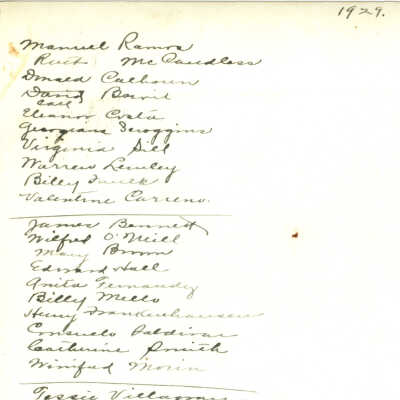 1929.
Manuel Ramos
Ruth McCandless
Donald Calhoun
David
Carl
Eleanor Costa
Georgiana Scroggins
Virginia Sill
Warren Lemley
Billy Faulk
Valentine Carreno.
James Bennett
Wilfred O'Neill
Mary Brown
Edward Hall
Anita Fernandez
Billy Mello
Henry Frankenhausen
Consuelo Valdivar
Catherine Smith
Winifred Morin
Tessie